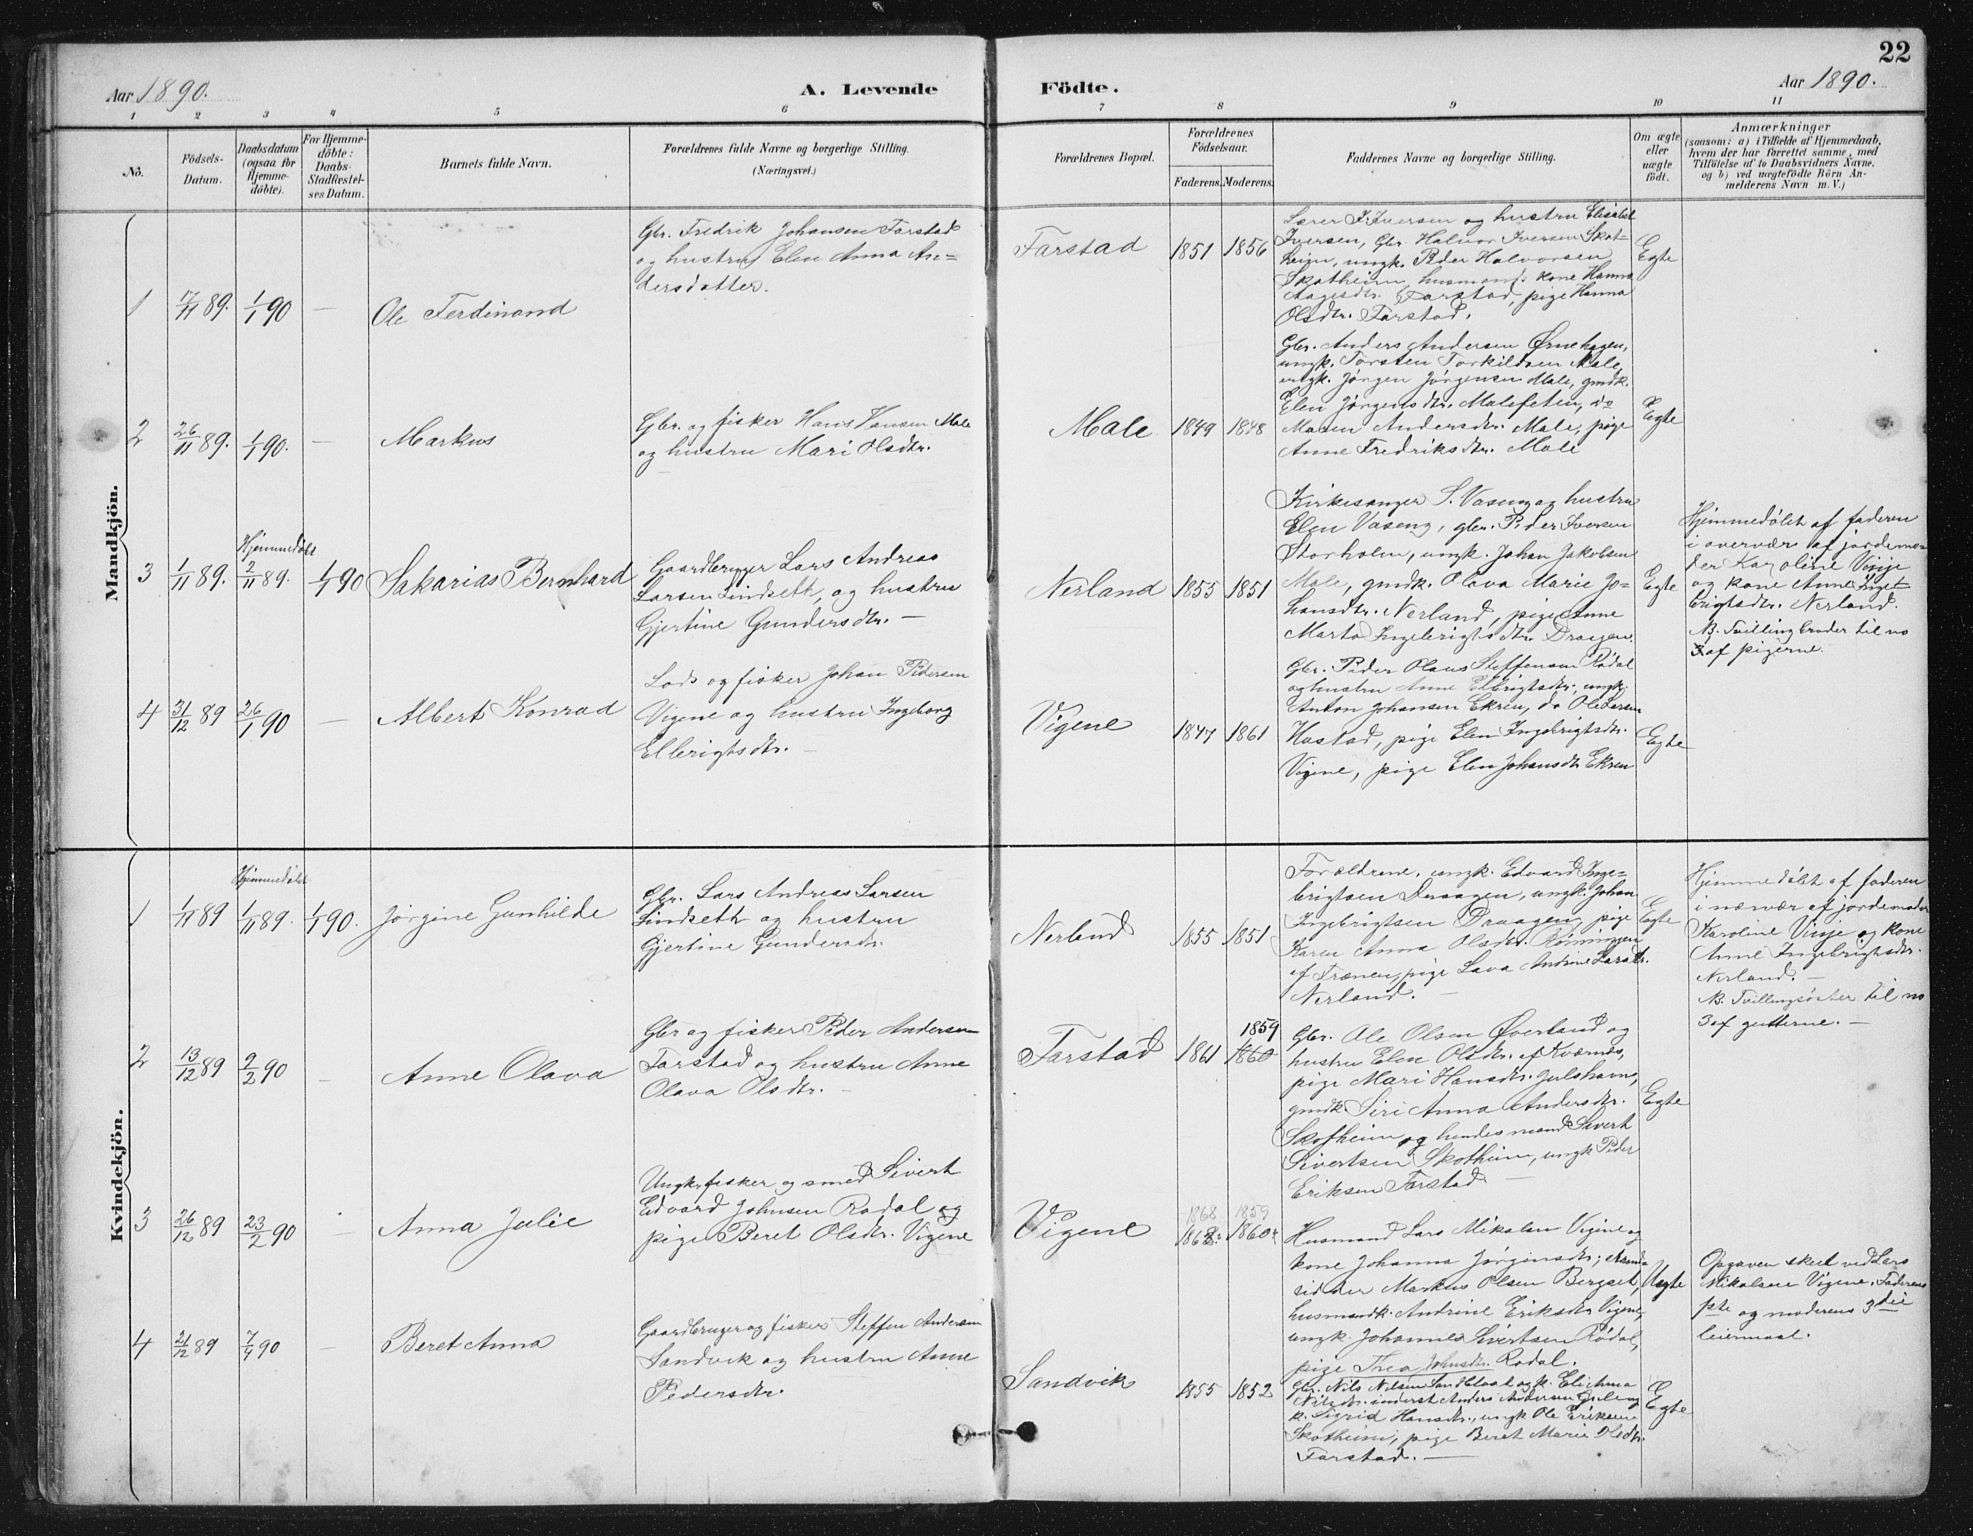 22
Aar 1890.
A. Levende
Födte.
Aar 1890.
1 2 3 4 5 6 7 8 9 10 11
No.
Födsels-
Datum.
Daabsdatum
(ogsaa for
Hjemme-
döbte).
For Hjemme-
döbte:
Daabs-
Stadfæstel-
ses Datum.
Barnets fulde Navn.
Forældrenes fulde Navne og borgerlige Stilling.
(Næringsvei.)
Forældrenes Bopæl.
Forældrenes
Födselsaar.
Faderens. Moderens.
Faddernes Navne og borgerlige Stilling.
Om ægte
eller
uægte
födt.
Anmærkninger
(saasom: a) i Tilfælde af Hjemmedaab,
hvem der har forrettet samme, med
Tilföielse af to Daabsvidners Navne,
og b) ved uægtefödte Börn An-
melderens Navn m. V.)
Mandkjön.
1
17/11 89.
1/1 90
—
Ole Ferdinand
Gbr. Fredrik Johansen Farstad
og hustru Elen Anna An-
dersdatter.
Farstad
1851
1856
Lærer K. Iversen og hustru Elisabet
Iversen, Gbr Halvor Iversen Skot-
heim, ungk. Peder Halvorsen
Skotheim, husmand. kone Hanna
Aagesdtr. Farstad, pige Hanna
Olsdtr. Farstad.
Egte
2
26/11 89.
1/1 90.
—
Markus
Gbr. og fisker Hans Hansen Male
og hustru Mari Olsdtr.
Male
1849
1848
Gbr. Anders Andersen Ørnehagen,
ungk. Torsten Torkildsen Male,
ungk. Jørgen Jørgensen Male, gmdk.
Elen Jørgensdtr. Malefeten, do
Maren Andersdtr. Male, pige
Anne Fredriksdtr. Male
Egte
3
1/11 89.
Hjemmedøbt
2/11 89.
1/1 90
Sakarias Bernhard
Gaardbruger Lars Andreas
Larsen Lindseth, og hustru
Gjertine Gundersdtr. —
Nerland
1855
1851
Kirkesanger S. Vaseng og hustru
Elen Vaseng, gbr. Peder Iversen
Storholm, ungk. Johan Jakobsen
Male, gmdk. Olava Marie Jo-
hansdtr. Nerland, pige Anne
Marta Ingebrigtsdtr. Draagen
Egte
Hjemmedøbt af faderen
i overvær af jordemo-
der Karoline Vinje
og kone Anne Inge-
brigtsdtr. Nerland.
NB. Tvillingbroder til no
3 af pigerne.
4
31/12 89
26/1 90
—
Albert Konrad
Lods og fisker Johan Pedersen
Vigene og hustru Ingeborg
Ellerigtsdtr. —
Vigene
1847
1861
Gbr. Peder Olaus Steffensen Rødal
og hustru Anne Elbrigtsdtr., ungk.
Anton Johansen Ekren, do Ole Larsen
Hostad, pige Elen Ingebrigtsdtr.
Vigene, pige Elen Johansdtr Ekren
Egte
Kvindekjön.
1
1/11 89
Hjemmedøbt
1/11 89.
1/1 90.
Jørgine Gunhilde
Gbr. Lars Andreas Larsen
Lindseth og hustru
Gjertine Gundersdtr.
Nerland
1855
1851
Forældrene, ungk. Edvard Inge-
brigtsen Draagen, ungk. Johan
Ingebrigtsen Draagen, pige
Karen Anna Olsdtr. Rømingen
af Frænen, pige Lava Andrine Larsdtr.
Nerland. —
Egte
Hjemmedøbt af faderen
i nærvær af jordemoder
Karoline Vinje og kone
Anne Ingebrigtsdtr.
Nerland. —
NB. Tvillingsøster til no
3 af gutterne. —
2
13/12 89
2/2 90
—
Anne Olava
Gbr og fisker Peder Andersen
Farstad og hustru Anne
Olava Olsdtr. —
Farstad
1861
1859
1860
Gbr. Ole Olsen Øverland og
hustru Elen Olsdtr. af Kværnes,
pige Mari Hansdtr. Julshavn,
gmdk Siri Anna Andersdtr.
Skotheim og hendes mand Sivert
Sivertsen Skotheim, ungk Peder
Eriksen Farstad —
Egte
3
26/12 89
23/2 90
—
Anna Julie
Ungk. fisker og smed Sivert
Edvard Johnsen Rødal og
pige Beret Olsdtr. Vigene
Vigene
1868
1868.
1859
1860.
Husmand Lars Mikalsen Vigene og
kone Johanna Jørginsdtr,
sidder Markus Olsen Bergset,
husmandk. Andrine Eriksdtr Vigene,
ungk. Johannes Sivertsen Rødal,
pige Thea Johnsdtr. Rødal.
Uegte
Opgaven skeet ved Lars
Mikalsen Vigene. Faderens
1ste og moderens 3die
leiermaal.
4
21/12 89
7/4 90
—
Beret Anna
Gaardbruger og fisker Steffen Andersen
Sandvik og hustru Anne
Pedersdtr.
Sandvik
1855
1852
Gbr. Nils Nilsen Sandblaast og k. Eli Anna
Nilsdtr. inderst Anders Andersen og
k. Sigrid Hansdtr., ungk Ole Eriksen
Skotheim, pige Beret Marie Pedsdtr.
Farstad. —
Egte